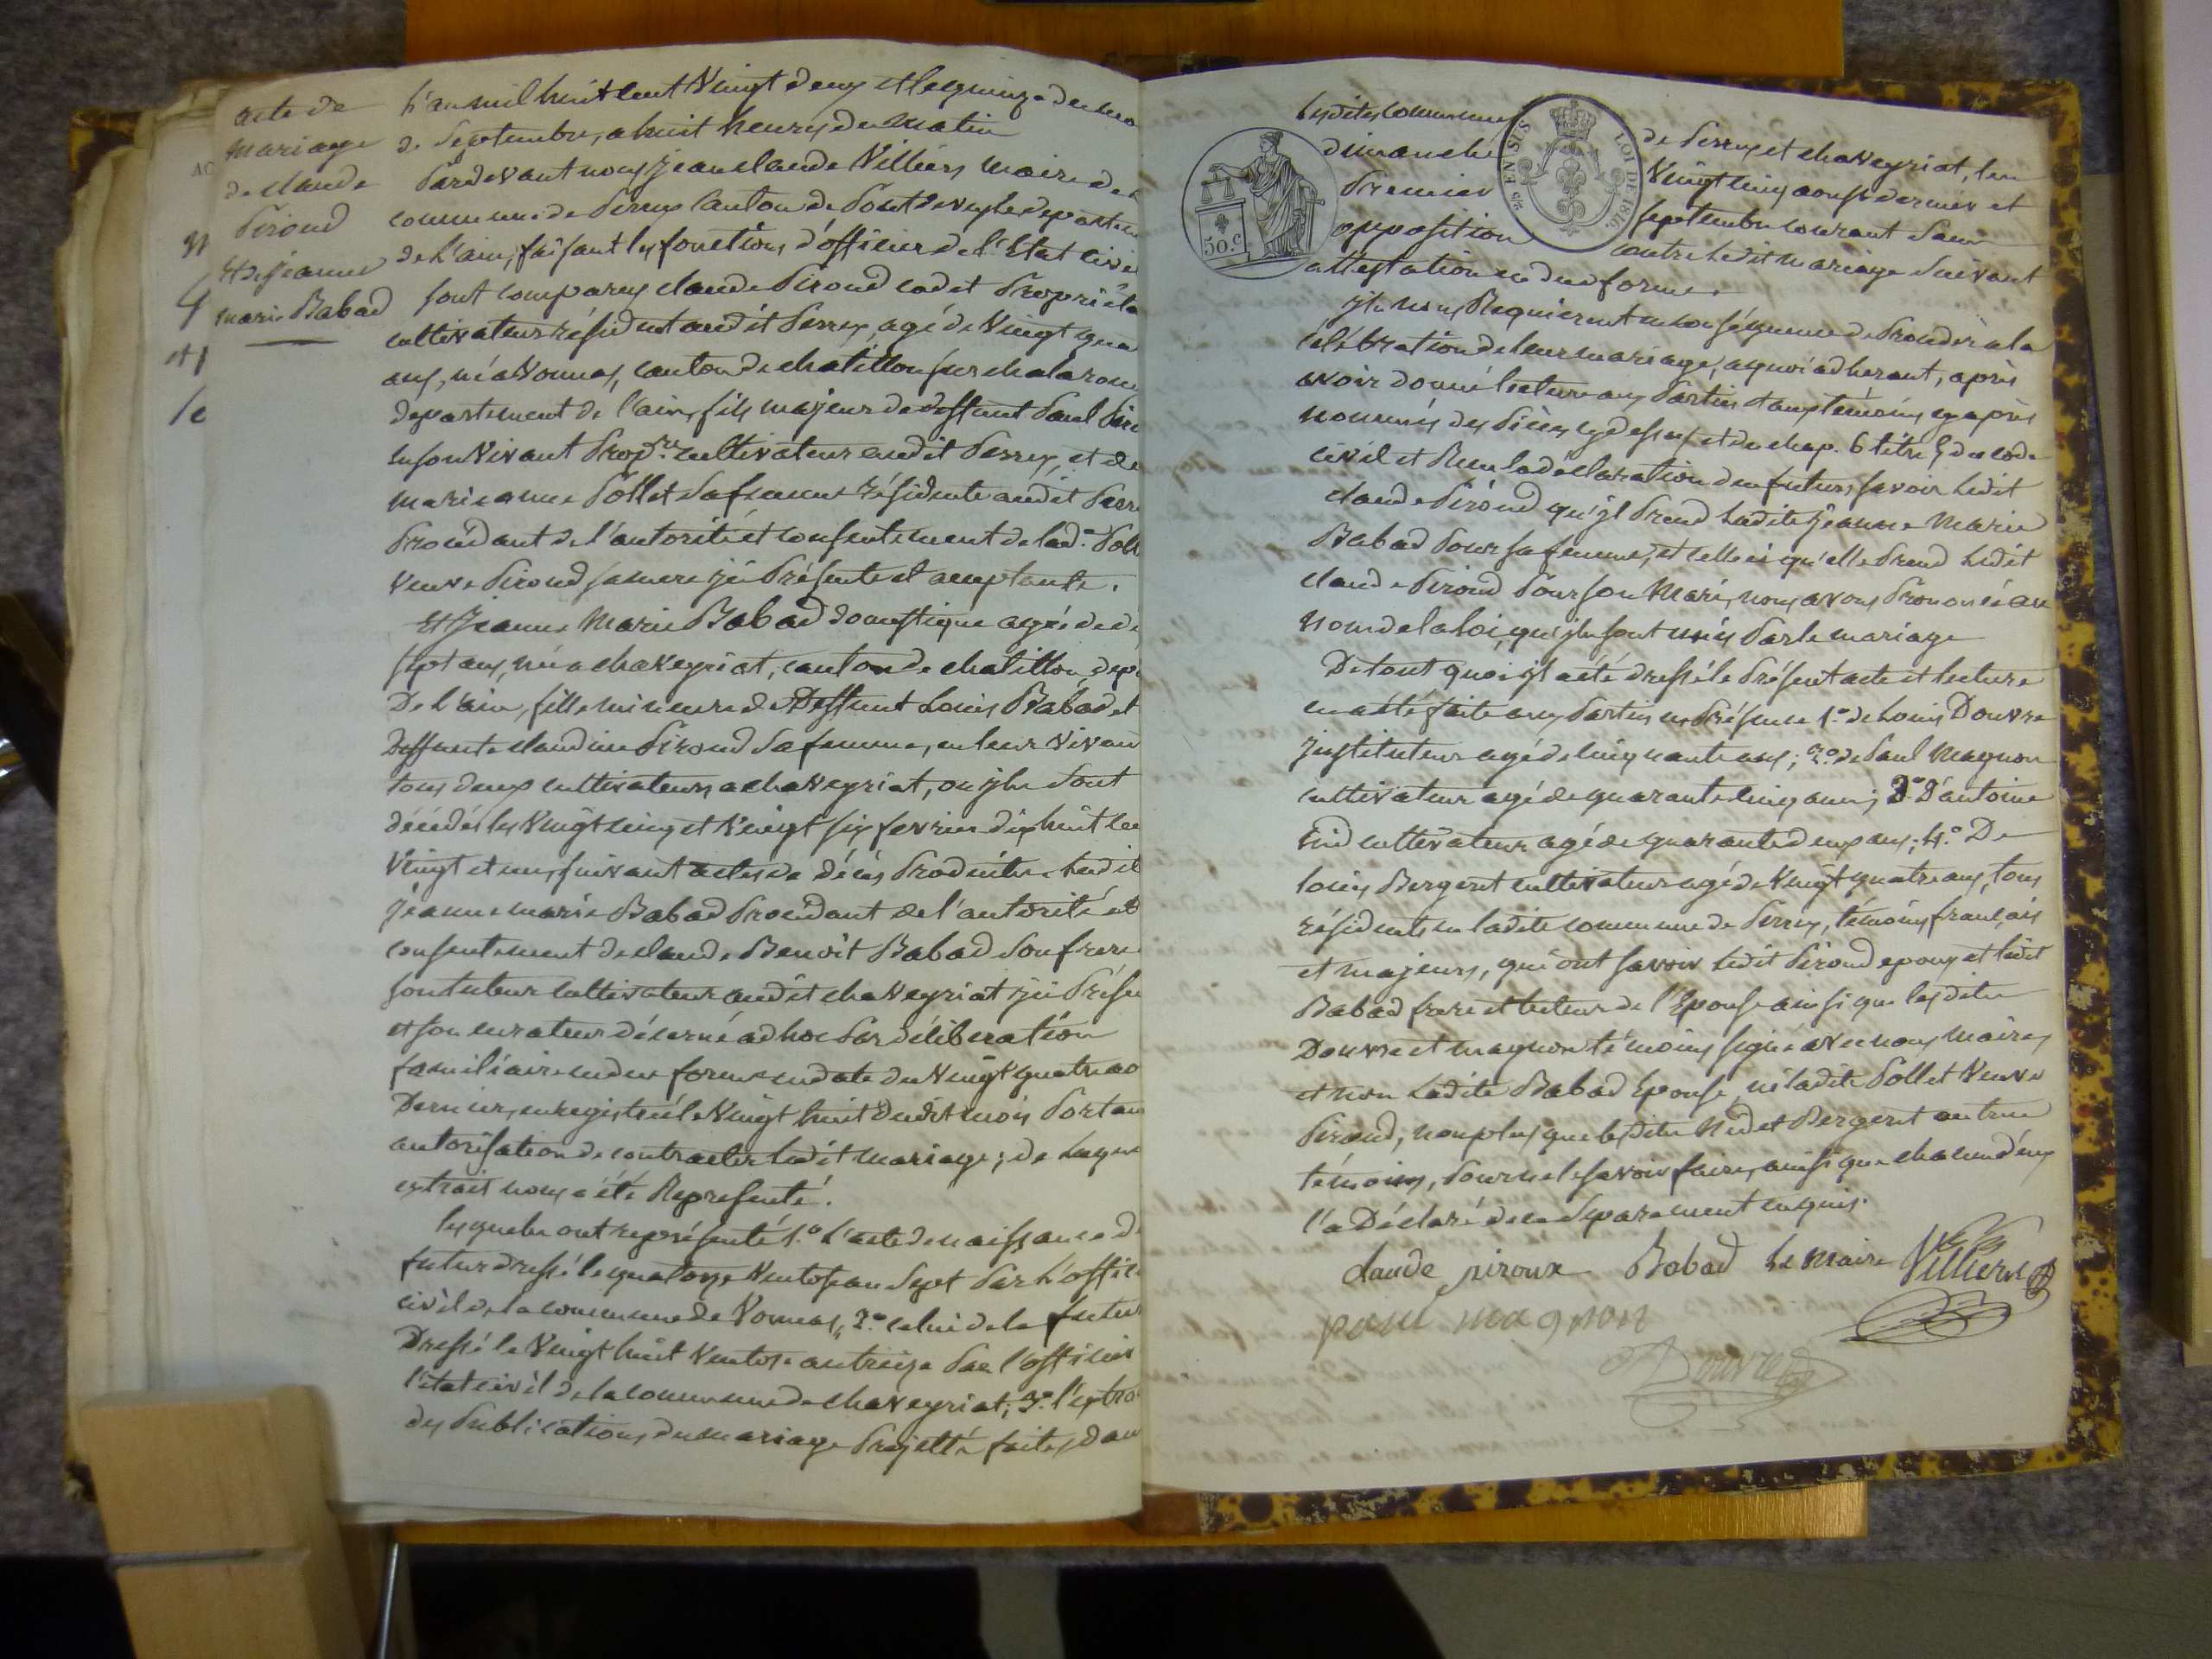 acte de
mariage
de claude
Piroud
Et de jeanne
marie Babad
L'an mil huit cent Vingt deux et le quinze du mo
de Septembre, a huit heures du matin
Pardevant nous jean claude Villiers maire de
commune de Perrex canton de Pont de veyle departem
de L'ain, faisant les fonctions d'officier de l'Etat civil
sont comparus claude Piroud cadet Propriéta
cultivateur résident audit Perrex, agé de Vingt qua
ans, né a Vonnas, canton de chatillon sur chalarone
departement de l'ain, fils majeur de deffunt Paul Piro
en son Vivant Prop.re cultivateur audit Perrex, et de
marie anne Pollet Sa femme résidente audit Perre
Procédant de l'autorité et consentement de lad.e Poll
veuve Piroud sa mere ici Présente et acceptante.
Et Jeanne Marie Babad domestique agée de di
sept ans, née a chaveyriat, canton de chatillon, dep
De l'ain, fille mineure de Deffunt Louis Babad et
Deffunte claudine Piroud Sa femme, en leur Vivan
tous deux cultivateurs a chaveyriat, ou ils Sont
décédés les Vingt cinq et Vingt six fevrier dix huit cen
Vingt et un, suivant actes de décès Produites. Ladite
jeanne marie Babad Procédant de l'autorité et
consentement de claude Benoit Babad Son frere
son tuteur cultivateur audit chaveyriat ici Présen
et son curateur décerné ad hoc Par délibération
familiaire en due forme en date du Vingt quatre ao
Dernier, enregistré le Vingt huit dudit mois Portan
autorisation de contracter ledit mariage; de laque
extrait nous a été Representé.
lesquels ont représenté 1.o L'acte de naissance d
futur dressé le quatorze Ventose an Sept Par L'offici
civil de la commune de Vonnas, 2.o celui de la futur
Dressé le Vingt huit Ventose an treize Par l'officier
l'état civil de la commune de chaveyriat; 3.o l'extra
des Publications du mariage Projetté faites dan
lesdites communes de Perrex et chaveyriat, les
dimanche Vingt cinq aoust dernier et
Premier septembre courant Sans
opposition contre ledit mariage Suivant
attestation en due forme.
50.c
LOI DE 1816.
ils nous Requierent en conséquence de Procéder a la
célébration de leur mariage, a quoi adherant, après
avoir donné lecture aux Parties et aux témoins cy après
nommés des Pièces cy dessus et du chap. 6 titre 5 du code
civil et Reçu la déclaration des futurs savoir ledit
claude Piroud qu'il Prend Ladite jeanne Marie
Babad Pour sa femme, et celle ci qu'elle Prend Ledit
claude Piroud Pour son Mari, nous avons Prononcé au
Nom de la loi, qu'ils sont unis Par le mariage
De tout quoi il a été dressé le Présent acte et lecture
en a été faite aux Parties en Présence 1.o de Louis Douvre
instituteur agé de cinquante ans; 2.o de Paul Magnon
cultivateur agé de quarante cinq ans; 3.o D'antoine
cultivateur agé de quarante deux ans; 4.o De
louis Bergeret cultivateur agé de Vingt quatre ans, tous
résidents en ladite commune de Perrex, témoins français
et majeurs, qui ont savoir ledit Piroud epoux et ledit
Babad frere et tuteur de l'Epouse ainsi que lesdits
Douvre et magnon témoins signé avec nous maire,
et non Ladite Babad Epouse, ni ladite Pollet Veuve
Piroud, non plus que lesdits et Bergeret autres
témoins, Pour ne le savoir faire, ainsi que chacun d'eux
l'a Déclaré de ce Separement enquis.
claude piroux Babad Le Maire Villiers
paul magnon
Douvre